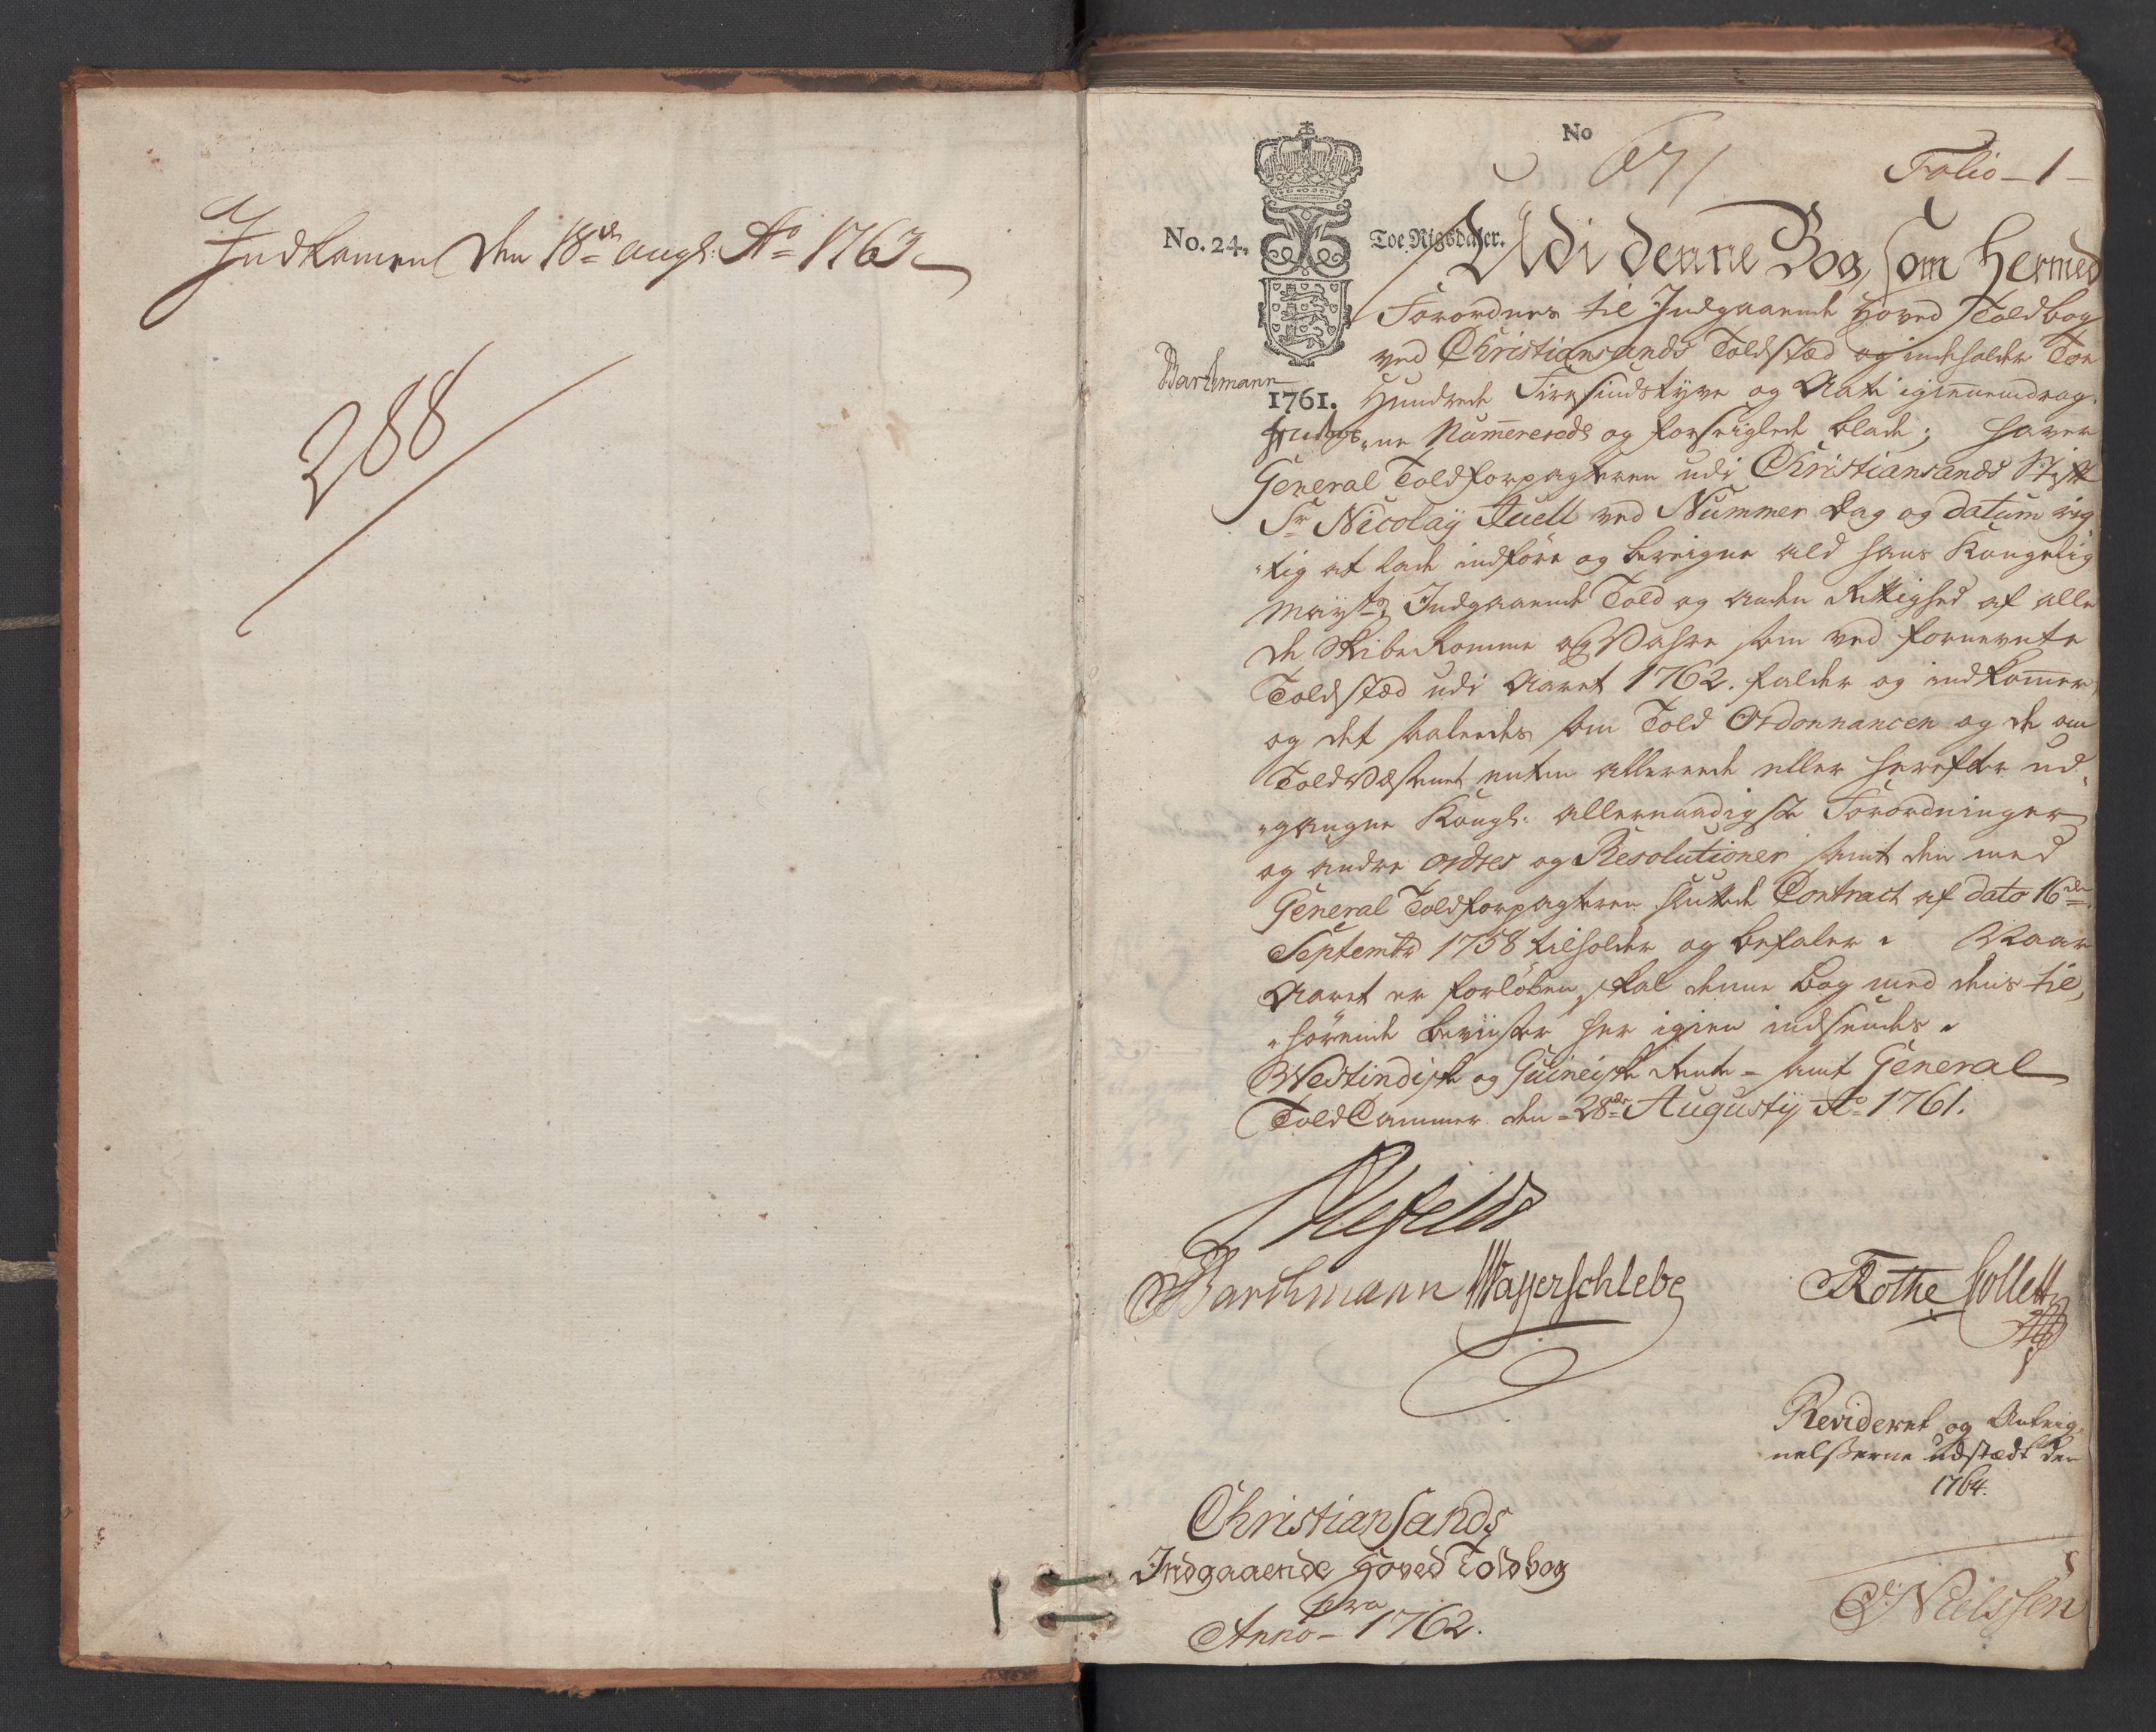 Indkommen den 18de augs: Ao 1763
288
No
671
Folio - 1 -
No. 24.
Toe Rigsdaler.
1761.
Barthmann
Udi denne Bog, som Hermed
Forordnes til Indgaaende Hoved Toldbog
ved Christiansands Toldstæd og indeholder Toe
Hundrede Fiiresindstyve og Aatte igiennemdrag-
"ne Numererede og forseiglede blade; haver
General Toldforpagteren udi Christiansands Stift
Sr Nicolaÿ Juell ved Nummer Dag og datum rig-
"tig at lade indføre og bereigne ald hans Kongelig
Mayts Indgaaende Told og anden Rettighed af alle
de Skibe Komme og Vahre som ved fornevnte
Toldstæd udi Aaret 1762. falder og indkommer,
og det saaledes som Told Ordonnancen og de om
ToldVæsenet enten allereede eller herefter ud-
"gangne Kongl: allernaadigste Forordninger
og andre ordres og Resolutioner samt den med
General Toldforpagteren sluttede Contract af dato 16de
Septembr 1758 tilholder og befaler. Naar
Aaret er forløben, skal denne bog med dens til-
"hørende beviister her igien indsendes.
Westindiske og Guineiske Rente- samt General
ToldCammer den 28de Augusty Ao 1761.
Barthmann Wasserschlebe
Rothe Collett
Revideret og Anteig-
nelsserne udstædt den
1764.
Christiansands
Indgaaende Hoved Toldbog
pro
Anno - 1762.
Nielssen